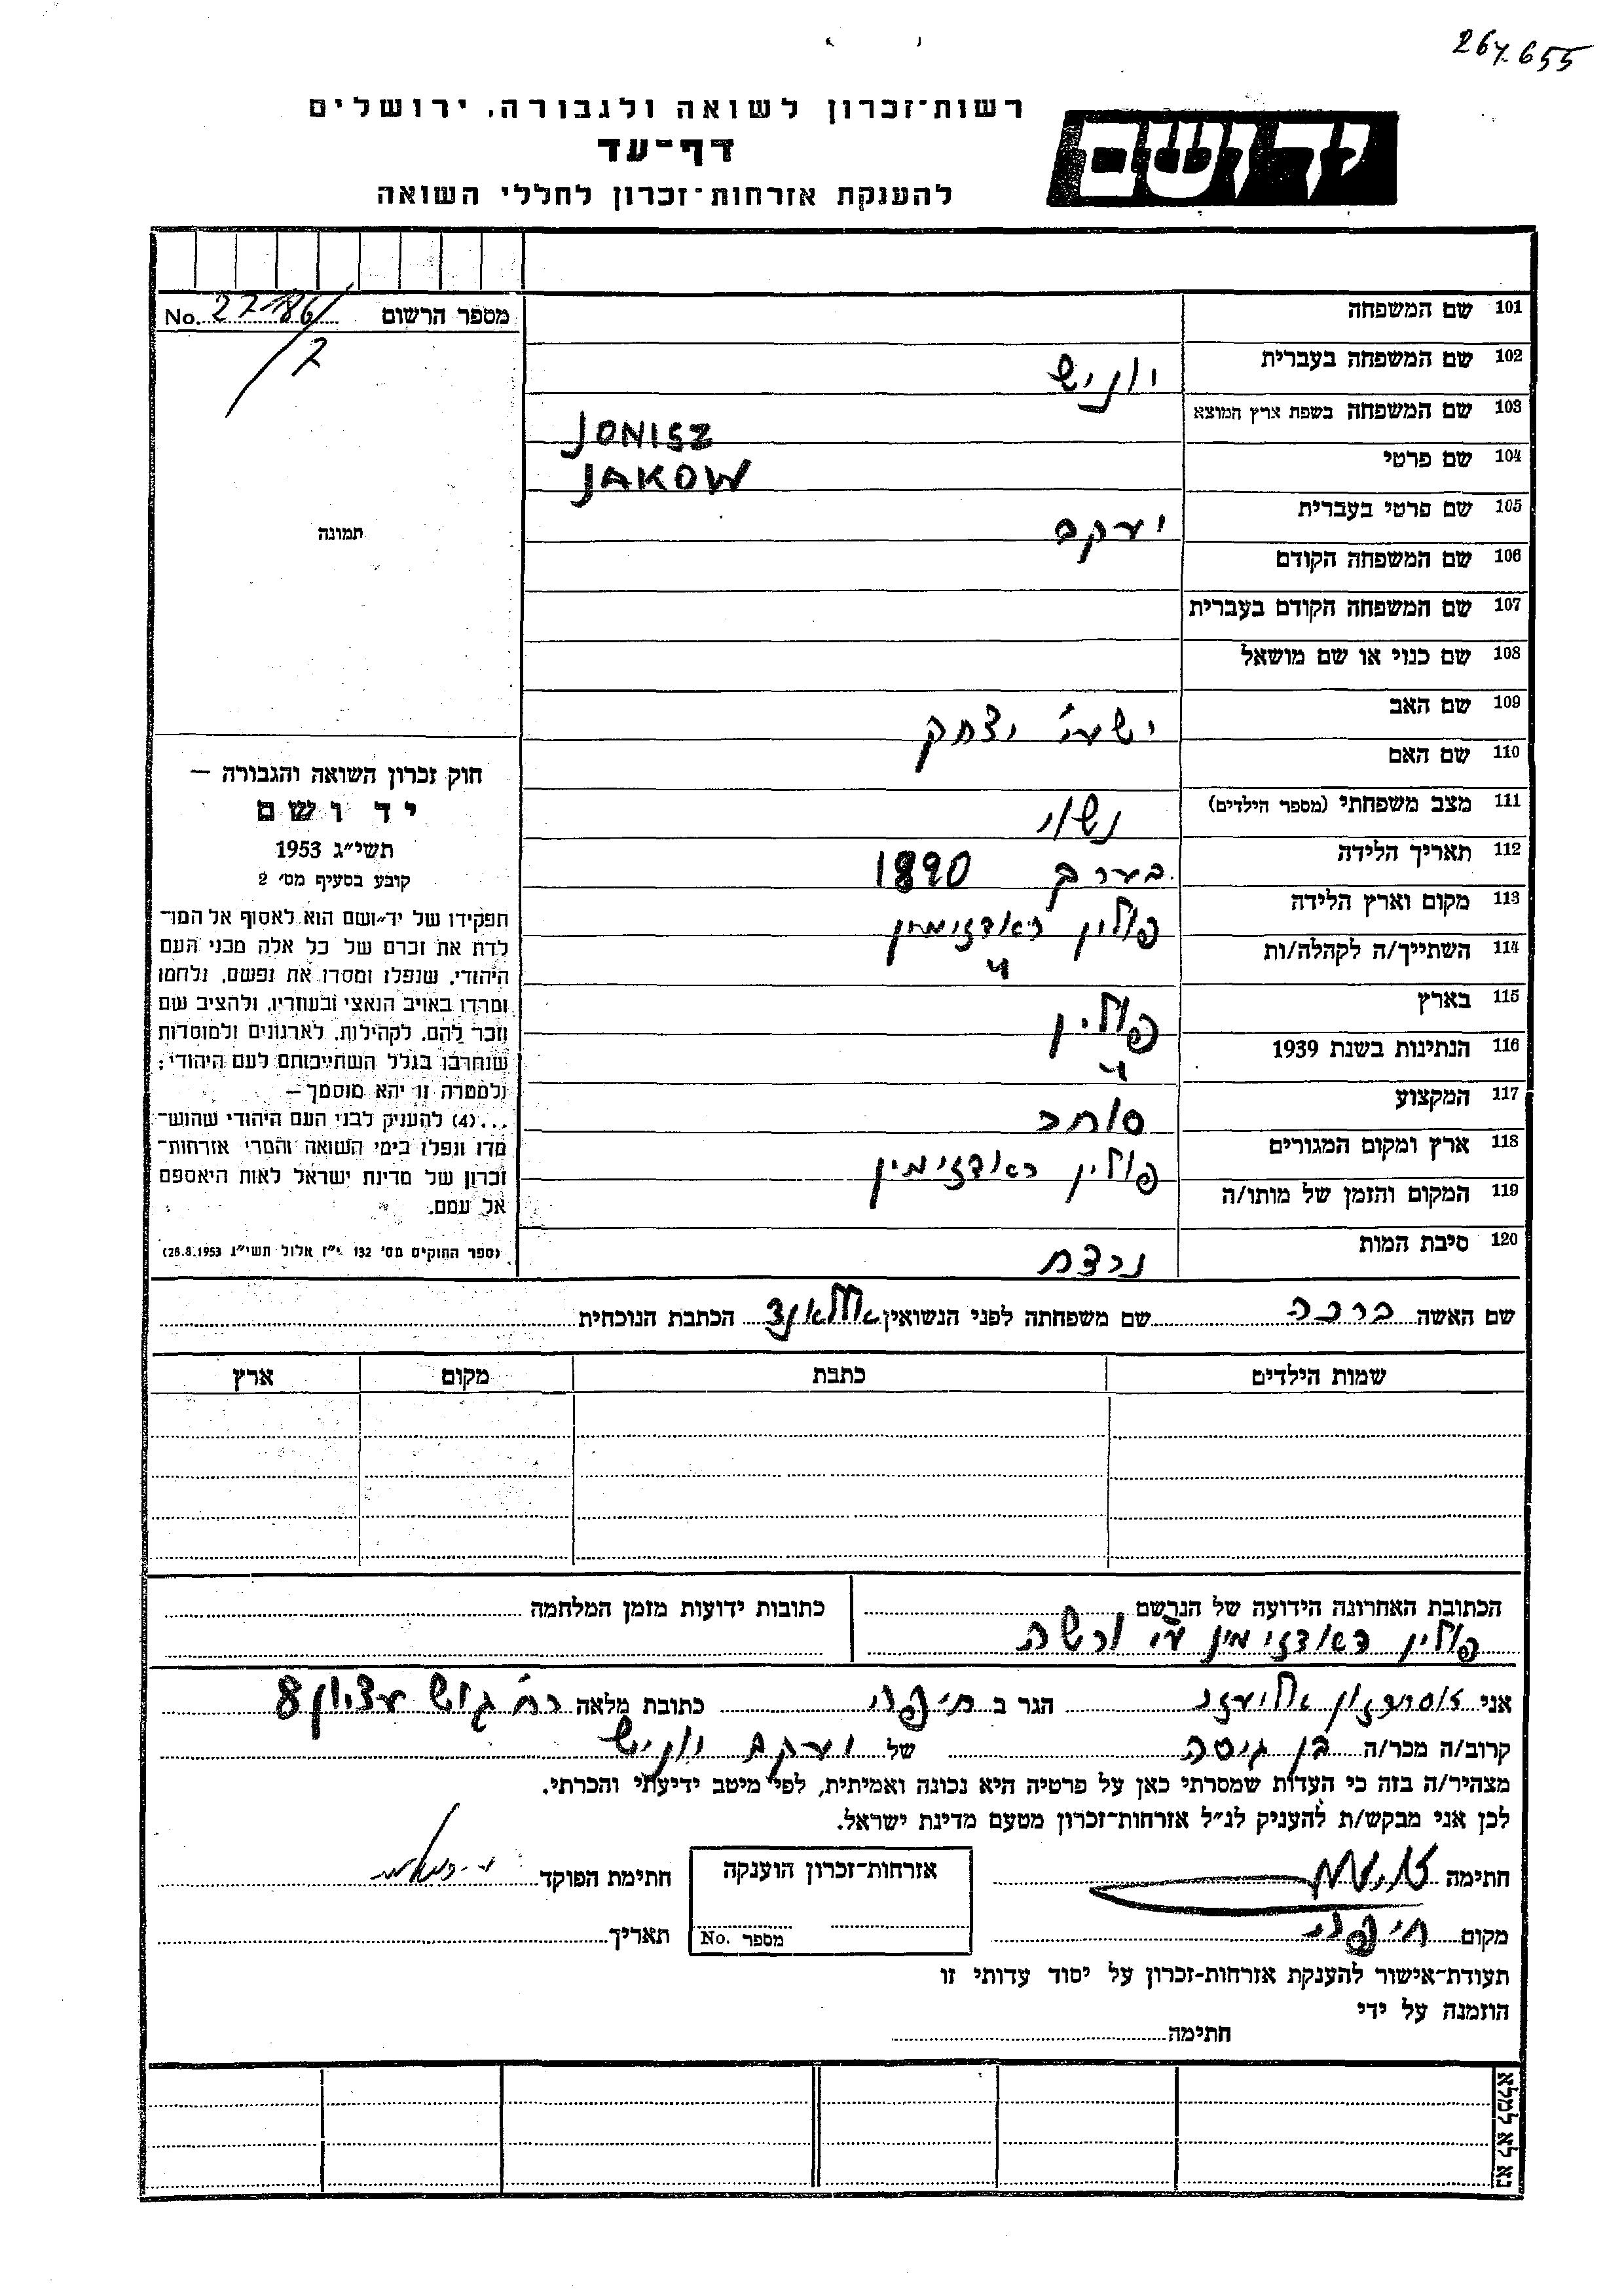 267.655
רשות-זכרון לשואה ולגבורה, ירושלים
יד ושם
דף-עד
להענקת אזרחות-זכרון לחללי השואה
101 שם המשפחה
מספר הרשום No. 22186/2
102 שם המשפחה בעברית יוניש
103 שם המשפחה בשפת ארץ המוצא JONISZ
104 שם פרטי JAKOW
105 שם פרטי בעברית יעקב
תמונה
106 שם המשפחה הקודם
107 שם המשפחה הקודם בעברית
108 שם כנוי או שם מושאל
109 שם האב ישעי' יצחק
110 שם האם
111 מצב משפחתי (מספר הילדים) נשוי
112 תאריך הלידה בערך 1890
113 מקום וארץ הלידה פולין ראדזימין
114 השתייך/ה לקהלה/ות "
115 בארץ פולין
116 הנתינות בשנת 1939 "
117 המקצוע סוחר
118 ארץ ומקום המגורים פולין ראדזימין
119 המקום והזמן של מותו/ה
120 סיבת המות נרצח
חוק זכרון השואה והגבורה —
יד ושם
תשי״ג 1953
קובע בסעיף מס׳ 2
תפקידו של יד־ושם הוא לאסוף אל המו־
לדת את זכרם של כל אלה מבני העם
היהודי, שנפלו ומסרו את נפשם, נלחמו
ומרדו באויב הנאצי ובעוזריו, ולהציב שם
וזכר להם, לקהילות, לארגונים ולמוסדות
שנחרבו בגלל השתייכותם לעם היהודי;
ולמטרה זו יהא מוסמך —
...(4) להעניק לבני העם היהודי שהוש־
מדו ונפלו בימי השואה והמרי אזרחות־
זכרון של מדינת ישראל לאות היאספם
אל עמם.
(ספר החוקים מס׳ 132 י״ז אלול תשי״ג 28.8.1953)
שם האשה ברכה שם משפחתה לפני הנשואין הכתבת הנוכחית
שמות הילדים כתבת מקום ארץ
הכתובת האחרונה הידועה של הנרשם כתובות ידועות מזמן המלחמה
פולין ראדזימין ע"י ורשה
אני אליעזר הגר ב חיפה כתובת מלאה רח' גוש עציון 8
קרוב/ה מכר/ה בן גיסה של יעקב יוניש
מצהיר/ה בזה כי העדות שמסרתי כאן על פרטיה היא נכונה ואמיתית, לפי מיטב ידיעתי והכרתי.
לכן אני מבקש/ת להעניק לנ״ל אזרחות־זכרון מטעם מדינת ישראל.
חתימה אזרחות־זכרון הוענקה חתימת הפוקד
מקום חיפה מספר No. תאריך
תעודת־אישור להענקת אזרחות-זכרון על יסוד עדותי זו
הוזמנה על ידי
חתימה
נא לא למלא